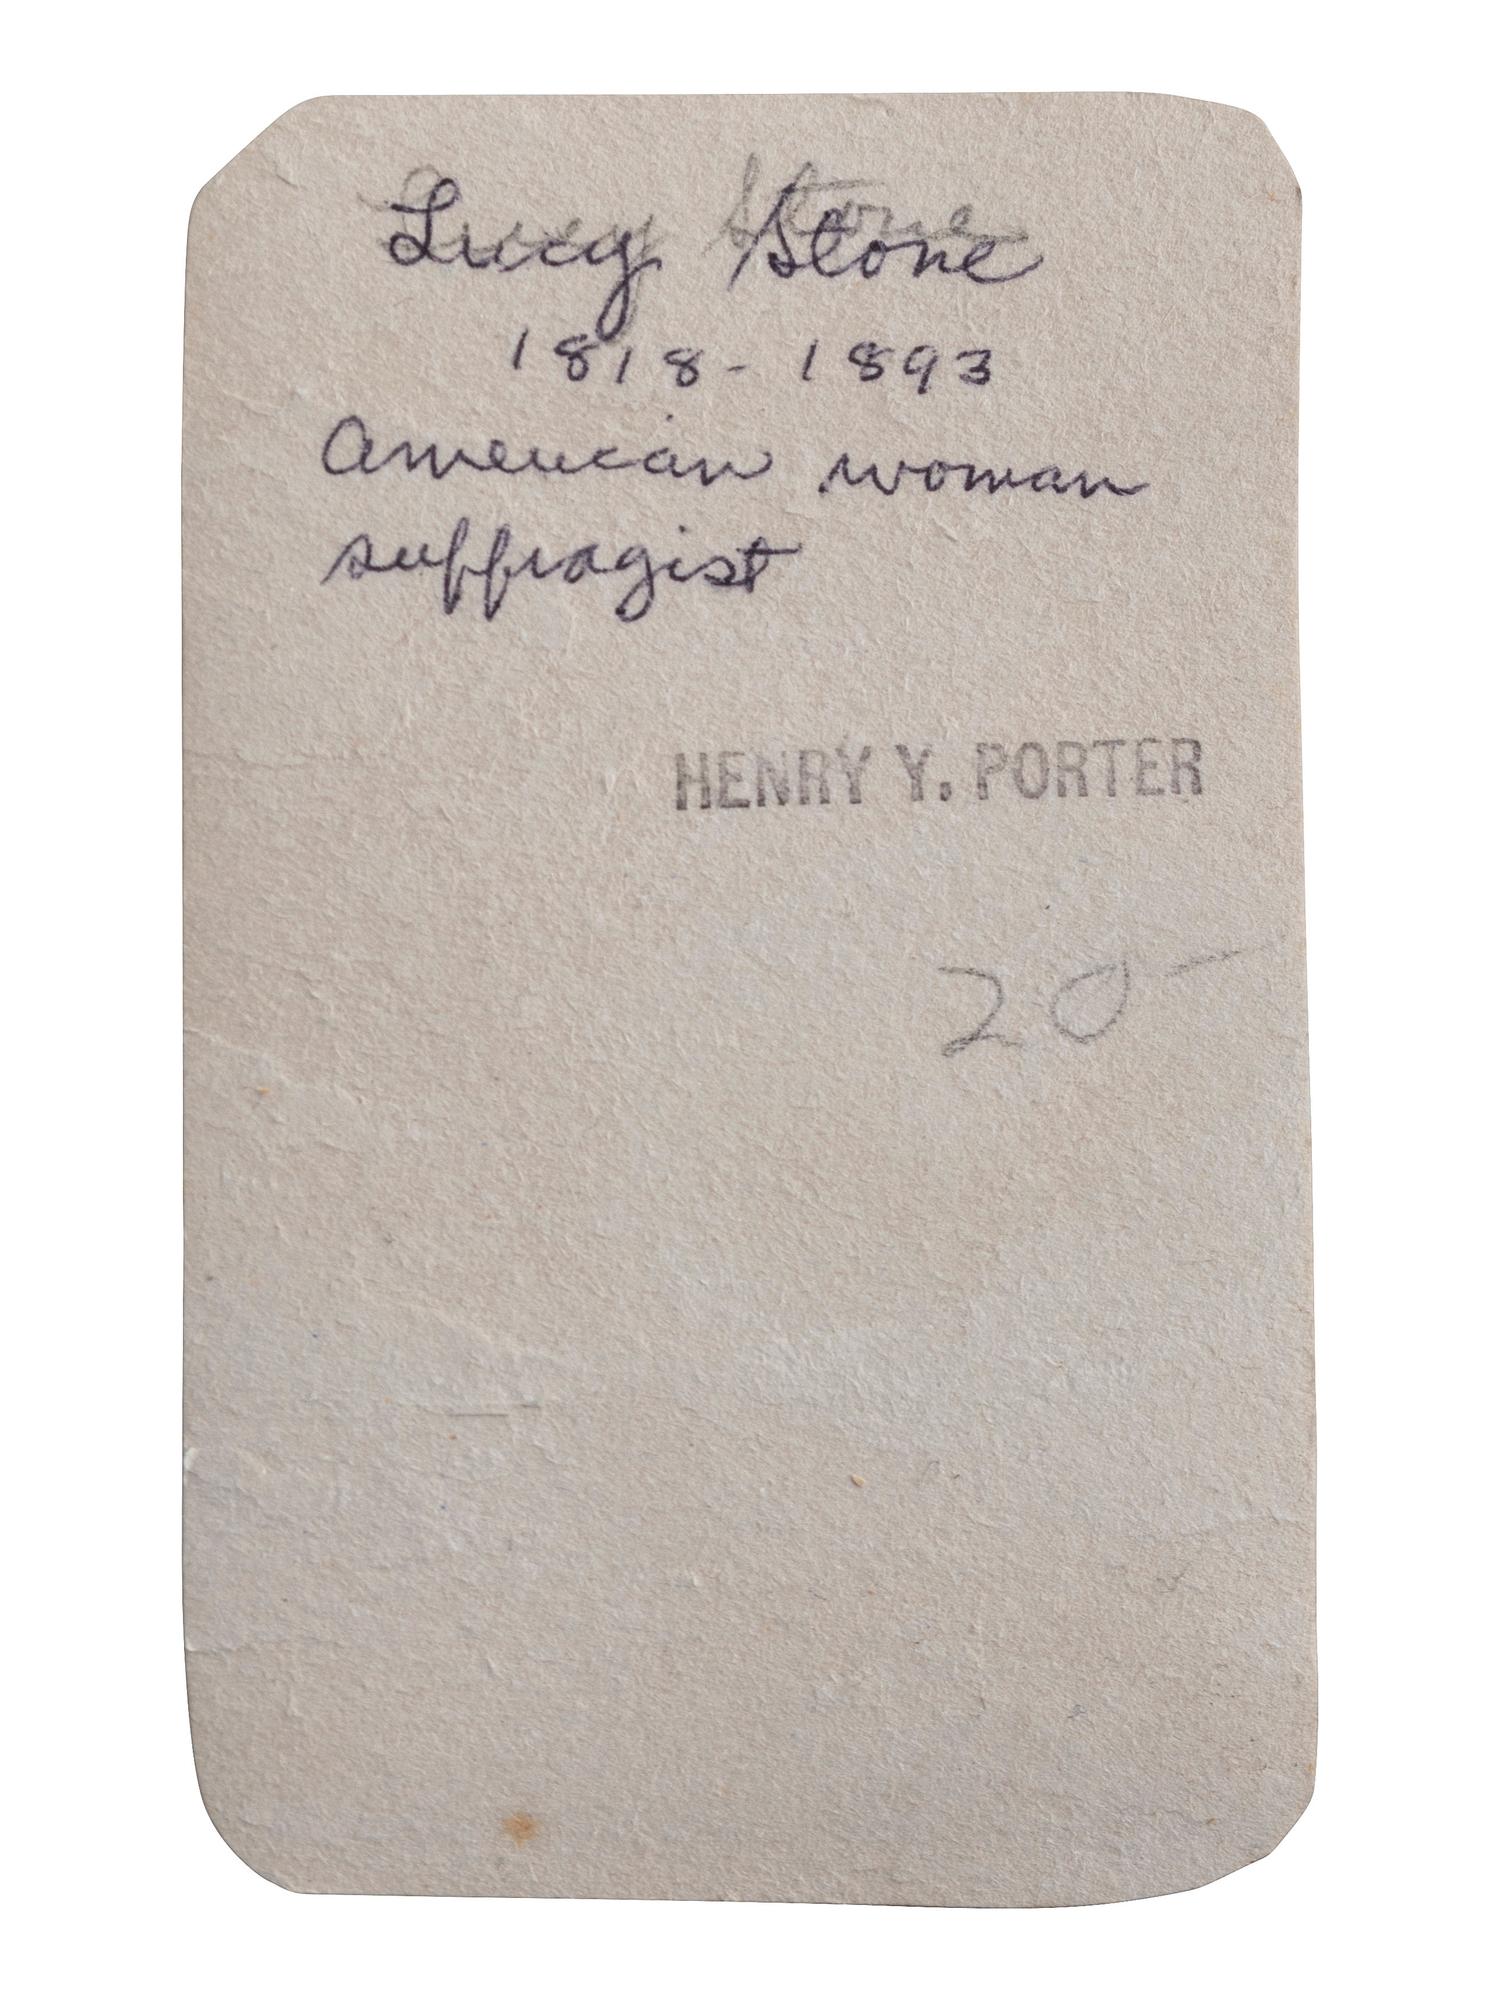 Lucy Stone
Lucy Stone
1818-1893
American woman
suffragist
HENRY Y. PORTER
20-